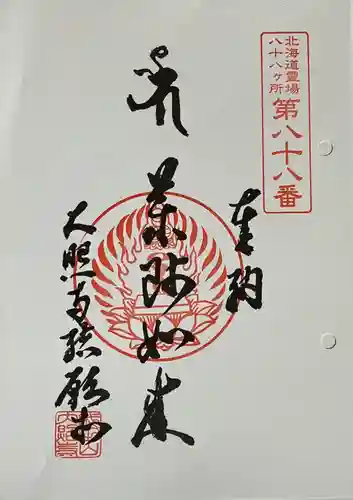 北海道霊場
八十八ヶ所
第八十八番
奉納
薬師如来
大照寺